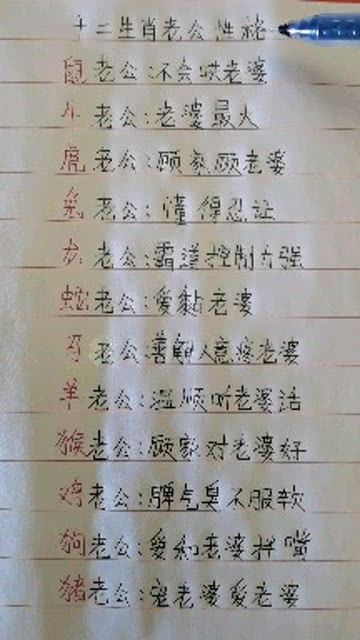 十二生肖老公性格
鼠老公:不会哄老婆
牛老公:老婆最大
虎老公:顾家顾老婆
兔老公:懂得忍让
龙老公:霸道控制力强
蛇老公:爱黏老婆
马老公:善解人意疼老婆
羊老公:温顺听老婆话
猴老公:顾家对老婆好
鸡老公:脾气臭不服软
狗老公:爱和老婆拌嘴
猪老公:宠老婆爱老婆